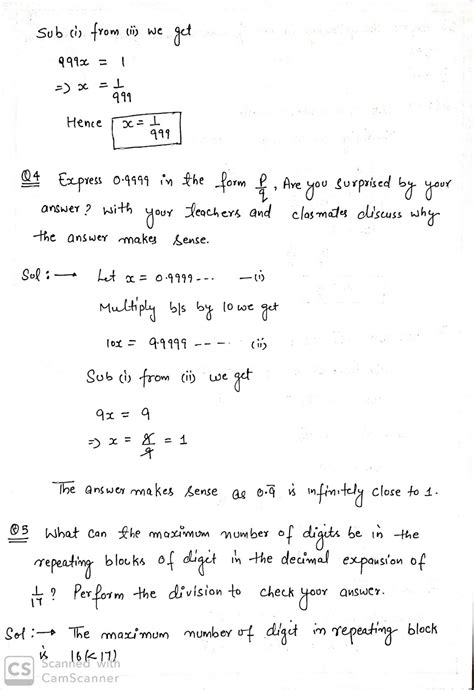 Sub (i) from (ii) we get
999x = 1
=> x = 1/999
Hence x = 1/999
Q4 Express 0.9999 in the form p/q, Are you surprised by your
answer? with your teachers and closmates discuss why
the answer makes sense.
Sol :→ Let x = 0.9999--- —(i)
Multiply b/s by 10 we get
10x = 9.9999 --- - (ii)
Sub (i) from (ii) we get
9x = 9
=> x = 9/9 = 1
The answer makes sense as 0.9̄ is infinitely close to 1.
Q5 What can the maximum number of digits be in the
repeating blocks of digit in the decimal expansion of
1/17? Perform the division to check your answer.
Sol :→ The maximum number of digit in repeating block
is 16(<17)
CS Scanned with
CamScanner